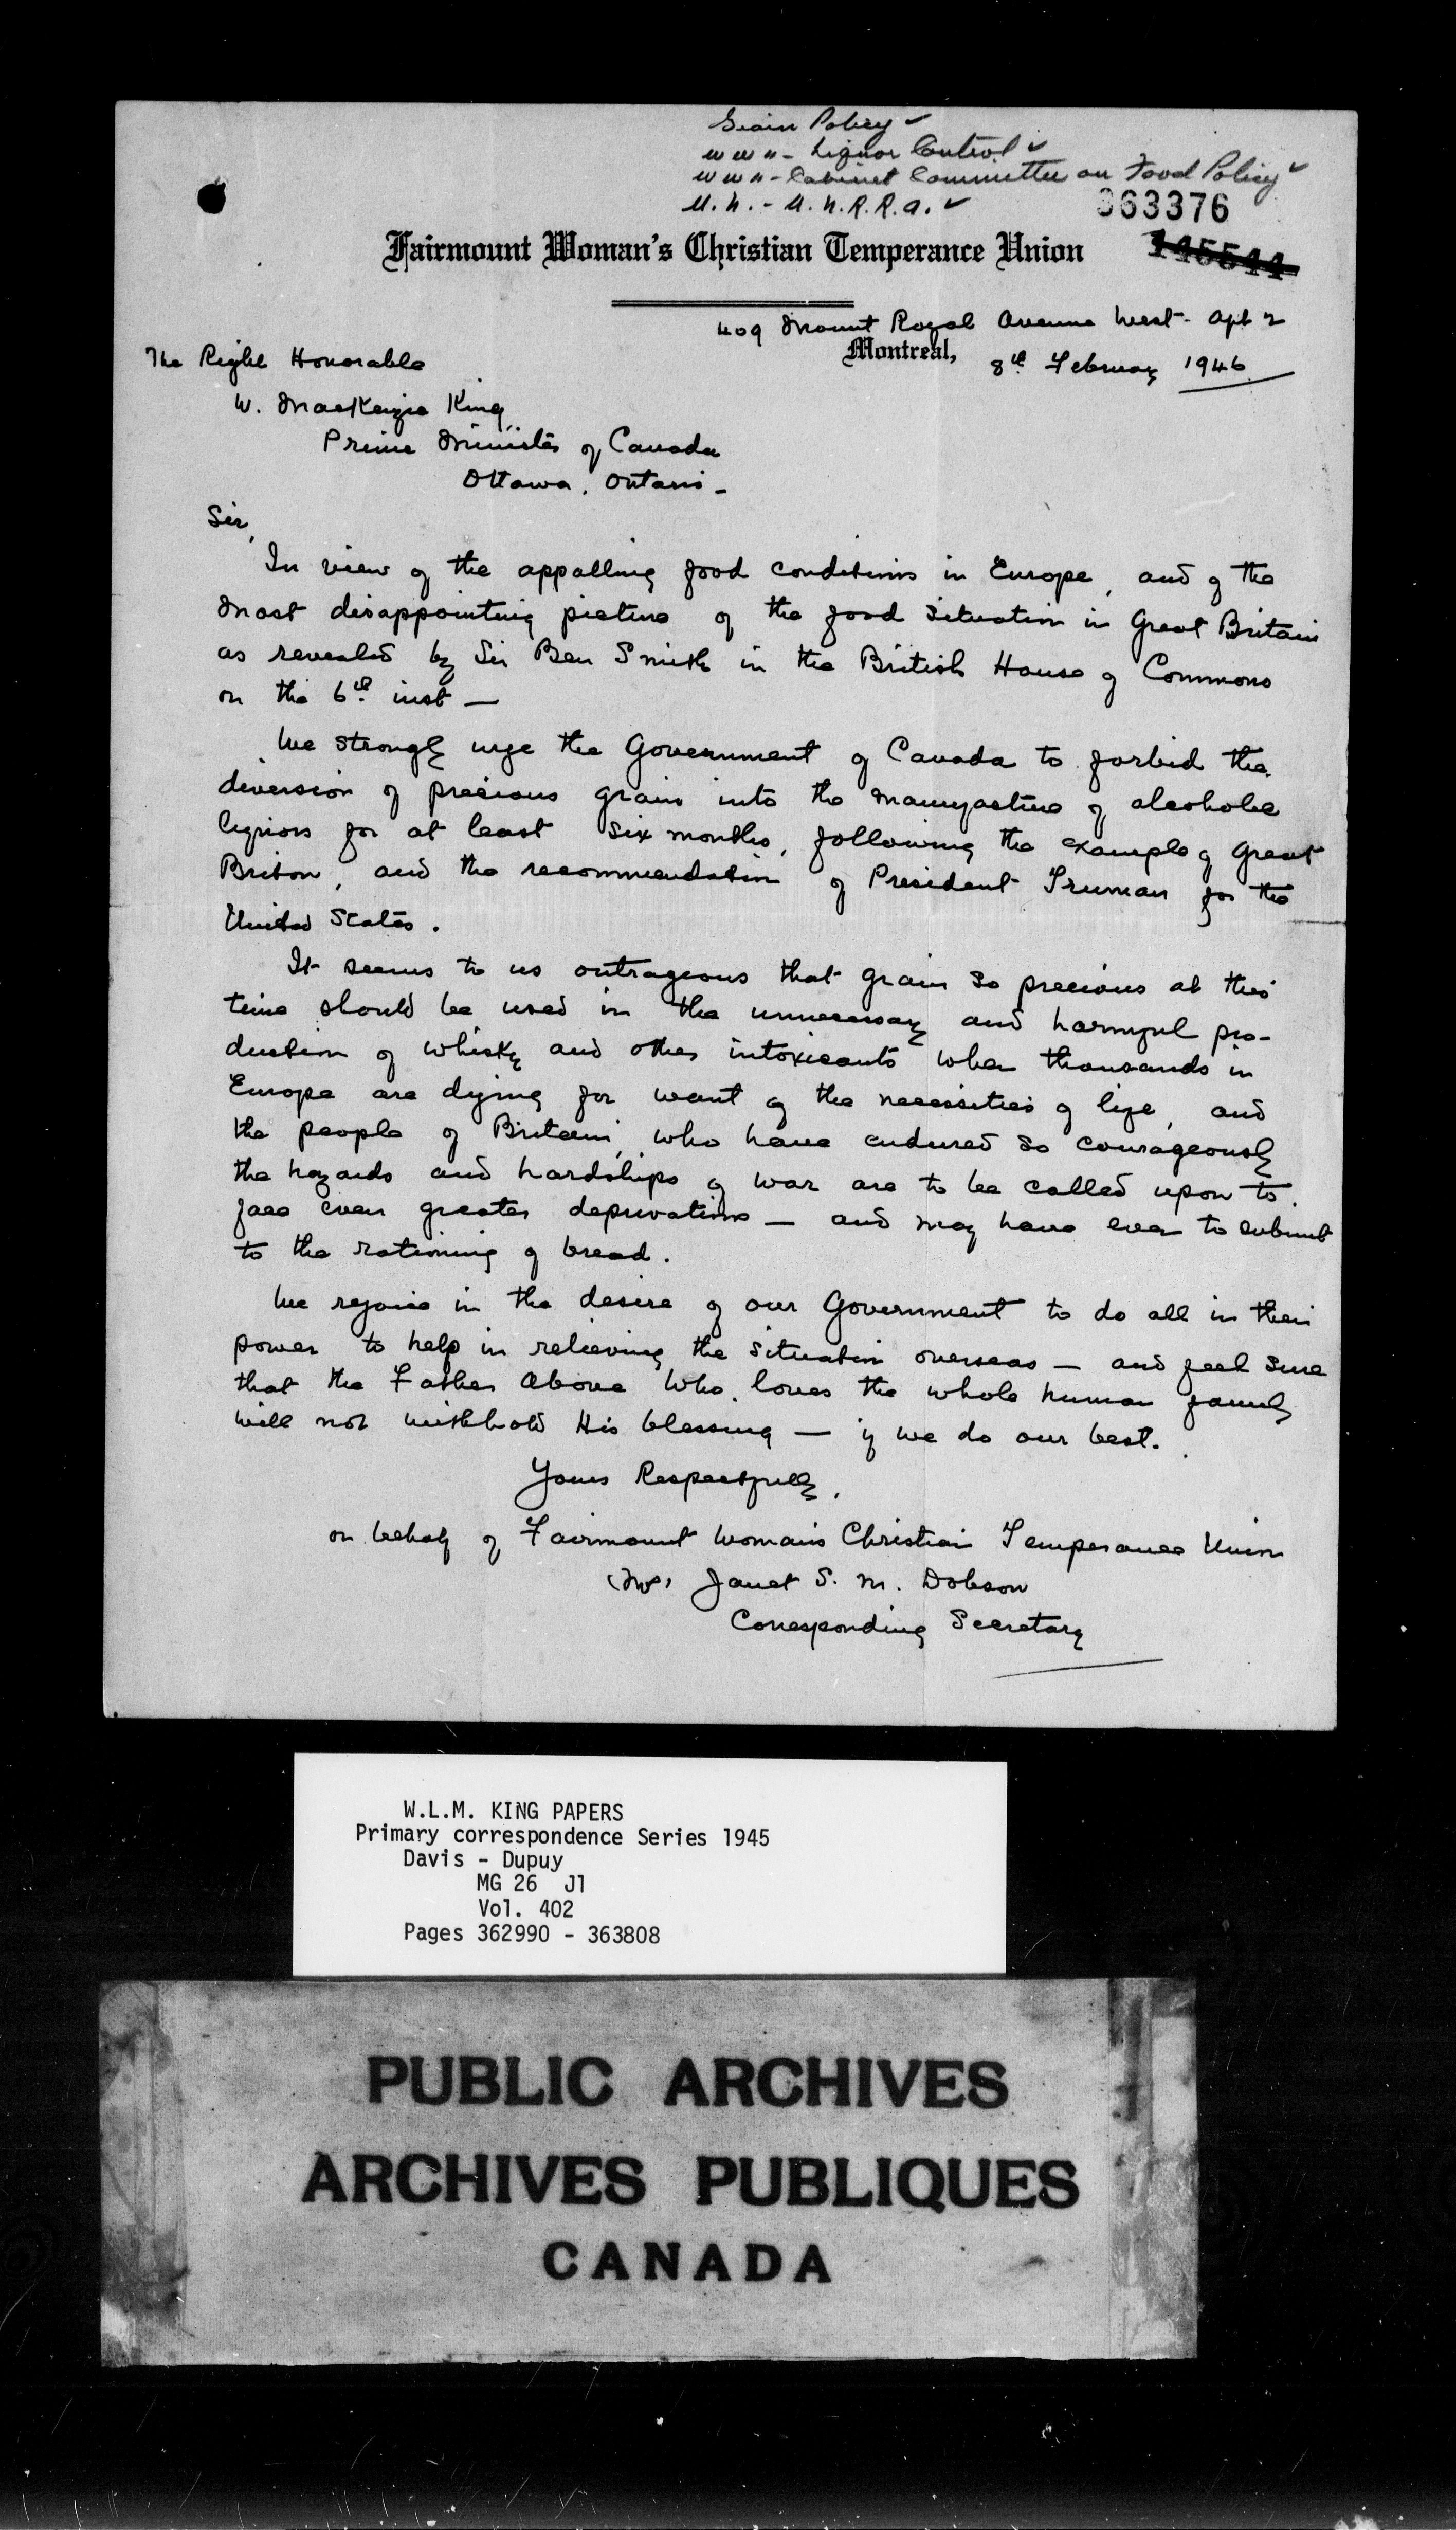 Grain Policy ✓
W W II - Liquor Control ✓
W W II - Cabinet Committee on Food Policy ✓
U.N. - U.N.R.R.A. ✓
363376
145544
Fairmount Woman's Christian Temperance Union
409 Mount Royal Avenue West - Apt 2
Montreal, 8th February 1946
The Right Honorable
W. MacKenzie King,
Prime Minister of Canada
Ottawa, Ontario -
Sir,
In view of the appalling food conditions in Europe, and of the
most disappointing picture of the food situation in Great Britain
as revealed by Sir Ben Smith in the British House of Commons
on the 6th inst —
We strongly urge the Government of Canada to forbid the
diversion of precious grain into the manufacture of alcoholic
liquors for at least six months, following the example of Great
Briton, and the recommendation of President Truman for the
United States.
It seems to us outrageous that grain so precious at this
time should be used in the unnecessary and harmful pro-
duction of whisky and other intoxicants when thousands in
Europe are dying for want of the necessities of life, and
the people of Britain, who have endured so courageously
the hazards and hardships of war are to be called upon to
face even greater deprivations — and may have even to submit
to the rationing of bread.
We rejoice in the desire of our Government to do all in their
power to help in relieving the situation overseas — and feel sure
that the Father Above Who loves the whole human family
will not withhold His blessing — if we do our best.
Yours Respectfully,
on behalf of Fairmount Woman's Christian Temperance Union
(Mrs) Janet S. M. Dobson
Corresponding Secretary
W.L.M. KING PAPERS
Primary correspondence Series 1945
Davis - Dupuy
MG 26 J1
Vol. 402
Pages 362990 - 363808
PUBLIC ARCHIVES
ARCHIVES PUBLIQUES
CANADA